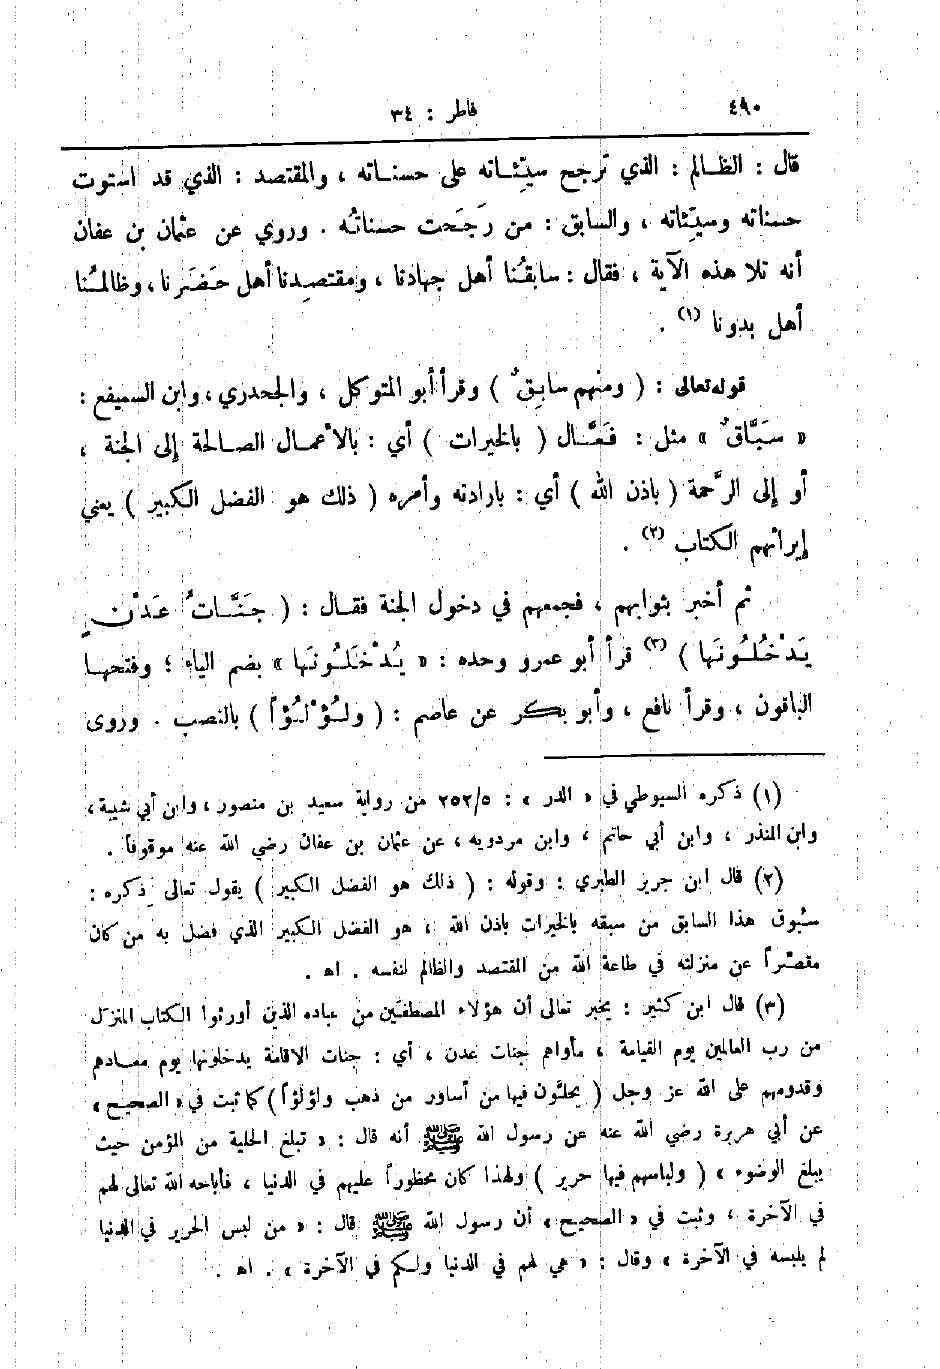 ٤٩٠ فاطر : ٣٤
قال : الظـالم : الذي تَرجح سيّئـاته على حسنـاته ، والمقتصد : الذي قد استوت
حسناته وسيّئاته ، والسابق : من رَجَحت حسناتُه . وروي عن عثمان بن عفان
أنه تلا هذه الآية ، فقال : سابقُنا أهل جهادنا ، ومقتصِدنا أهل حَضَرنا ، وظالمُنا
أهل بدونا (١) .
قوله تعالى : ( ومنهم سابِقٌ ) وقرأ أبو المتوكل ، والجحدري ، وابن السميفع :
« سَبَّاقٌ » مثل : فَعَّال ( بالخيرات ) أي : بالأعمـال الصـالحة إلى الجنة ،
أو إلى الرَّحمة ( باذن الله ) أي : بارادته وأمره ( ذلك هو الفضل الكبير ) يعني
إيراثهم الكتاب (٢) .
ثم أخبر بثوابهم ، فجمعهم في دخول الجنة فقـال : ( جَنَّاتُ عَدْنٍ
يَدْخُلُونَها ) (٣) قرأ أبو عمرو وحده : « يُدْخَلُونَها » بضم الياء ؛ وفتحهـا
الباقون ، وقرأ نافع ، وأبو بكر عن عاصم : ( ولُؤْلُؤاً ) بالنصب . وروى
(١) ذكره السيوطي في « الدر » : ٢٥٢/٥ من رواية سعيد بن منصور ، وابن أبي شيبة ،
وابن المنذر ، وابن أبي حاتم ، وابن مردويه ، عن عثمان بن عفان رضي الله عنه موقوفاً .
(٢) قال ابن جرير الطبري : وقوله : ( ذلك هو الفضل الكبير ) يقول تعالى ذكره :
سُبوق هذا السابق من سبقه بالخيرات باذن الله ، هو الفضل الكبير الذي فضل به من كان
مقصّراً عن منزلته في طاعة الله من المقتصد والظالم لنفسه . اه .
(٣) قال ابن كثير : يخبر تعالى أن هؤلاء المصطفَين من عباده الذين أورثوا الكتاب المنزّل
من رب العالمين يوم القيامة ، مأواهم جنات عدن ، أي : جنات الاقامة يدخلونها يوم معـادهم
وقدومهم على الله عز وجل ( يحلَّون فيها من أساور من ذهب ولؤلؤاً ) كما ثبت في « الصحيح »
عن أبي هريرة رضي الله عنه عن رسول الله ﷺ أنه قال : « تبلغ الحلية من المؤمن حيث
يبلغ الوضوء » ( ولباسهم فيها حرير ) ولهذا كان محظوراً عليهم في الدنيا ، فأباحه الله تعالى لهم
في الآخرة ، وثبت في « الصحيح » أن رسول الله ﷺ قال : « من لبس الحرير في الدنيا
لم يلبسه في الآخرة » وقال : « هي لهم في الدنيا ولكم في الآخرة » . اه .